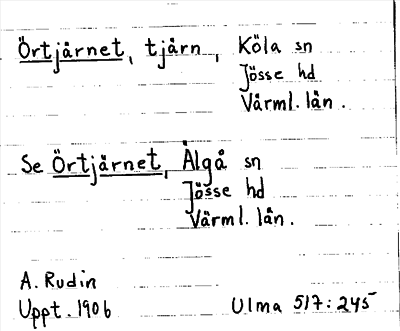 Örtjärnet, tjärn, Köla sn
Jösse hd
Värml. län.
Se Örtjärnet, Älgå sn
Jösse hd
Värml. län.
A. Rudin
Uppt. 1906
Ulma 517:245